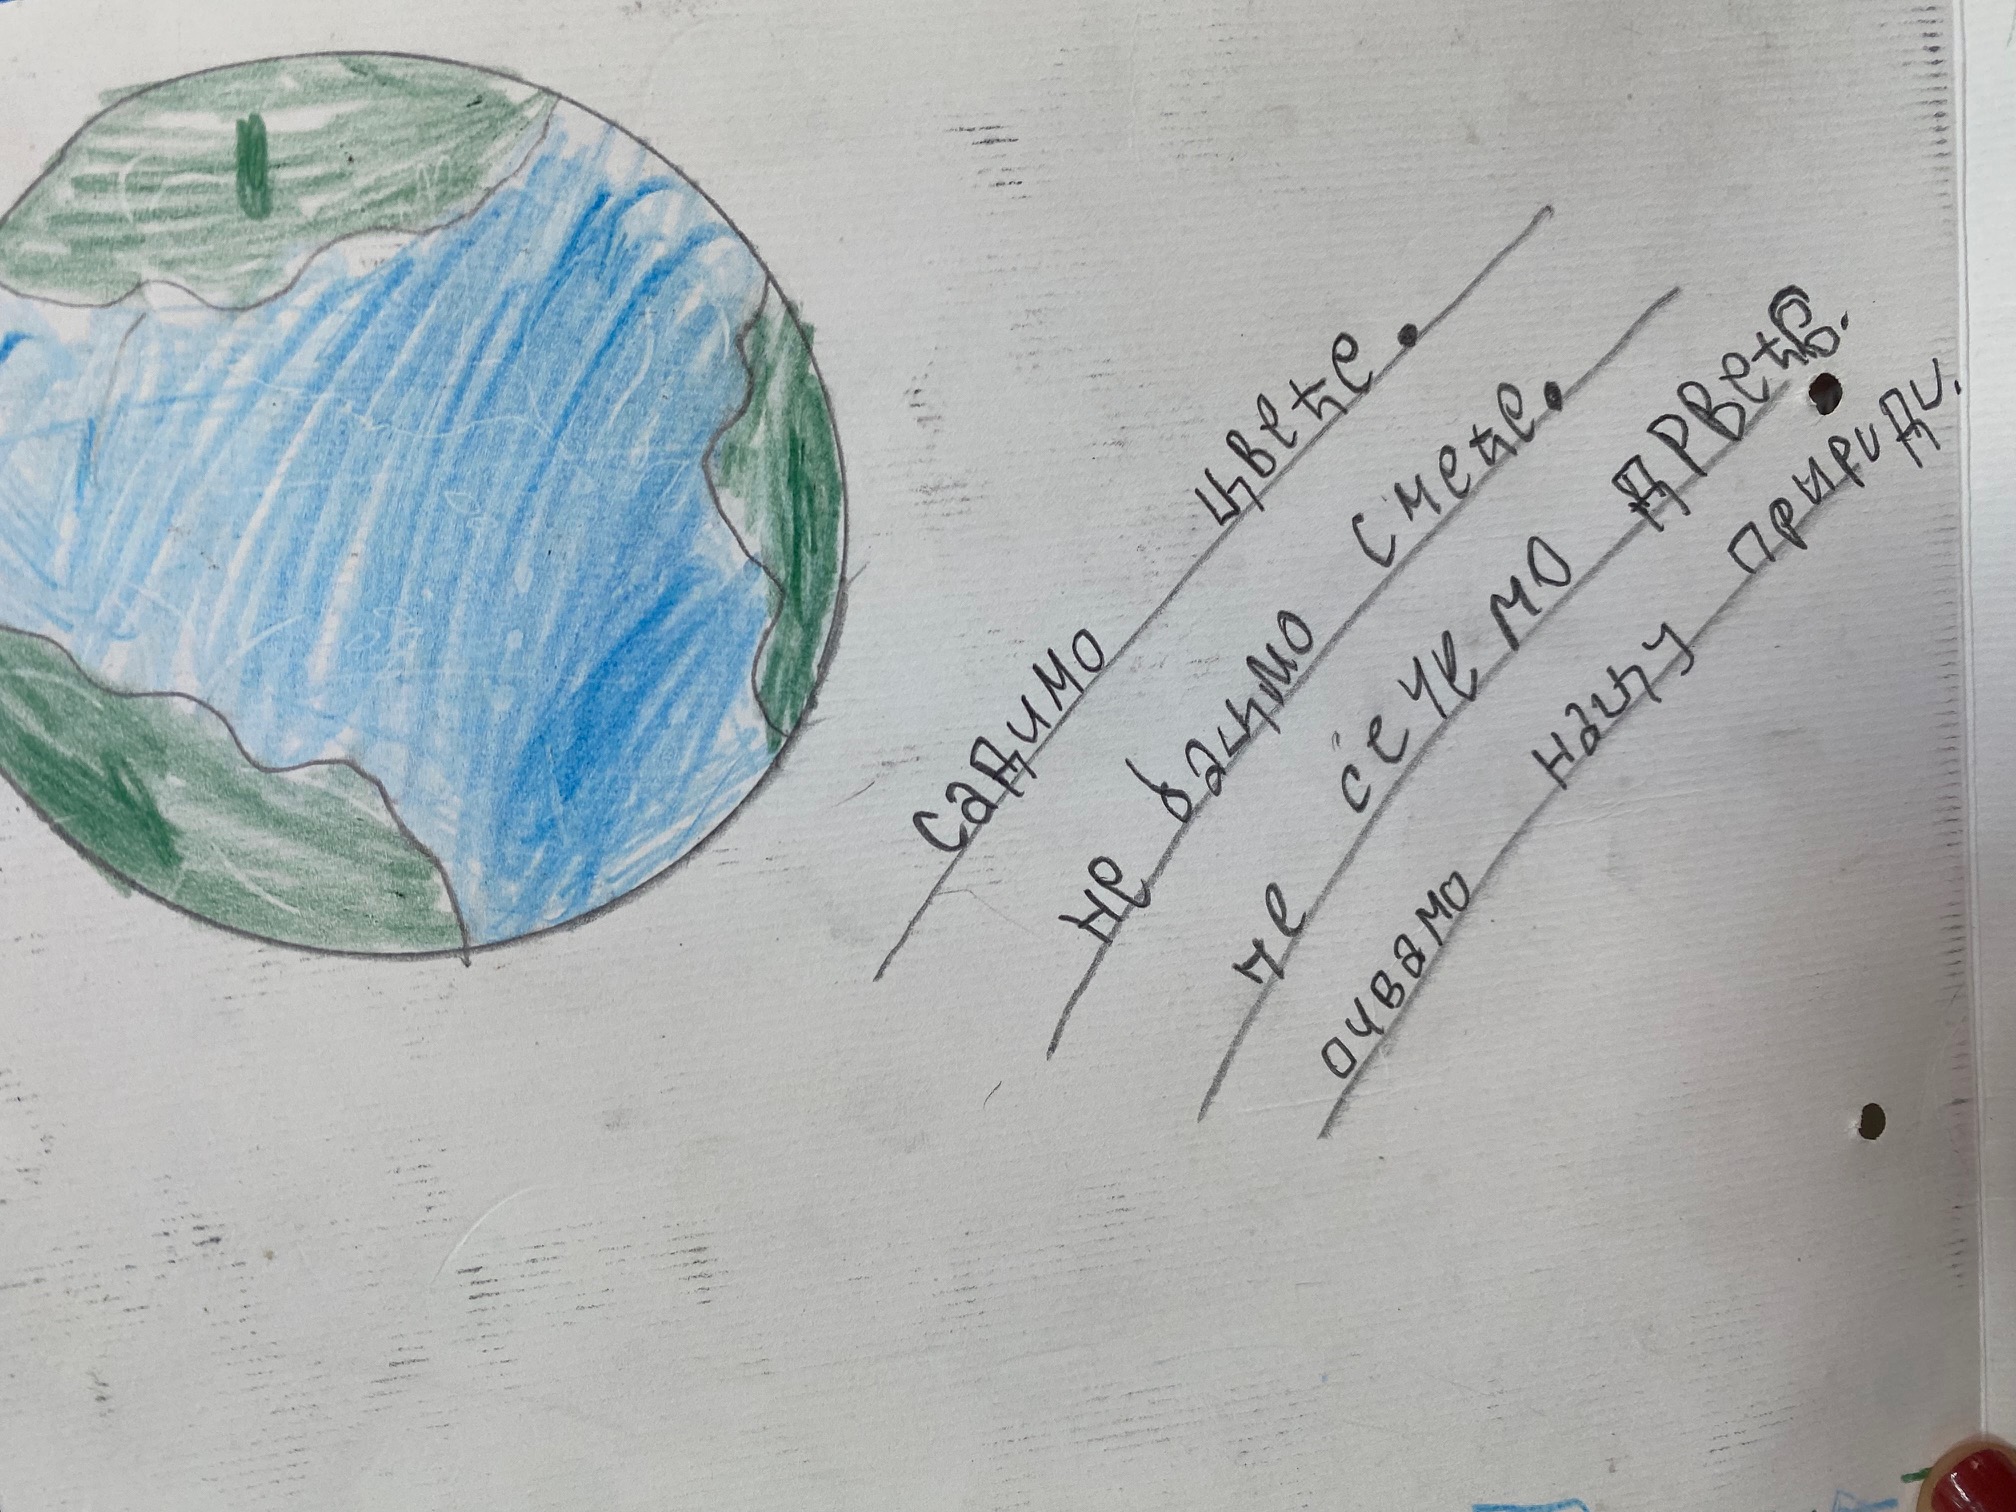 садимо цвеће.
не бацимо смеће.
не сечемо дрвеће.
очвамо нашу пририди.